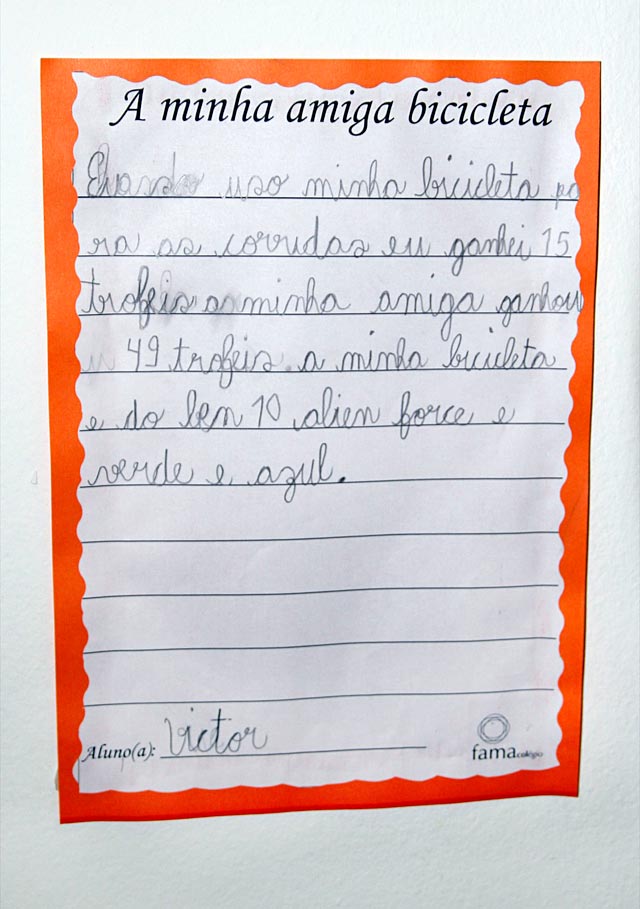 A minha amiga bicicleta
Quando uso minha bicicleta pa
ra as corridas eu ganhei 15
trofeis a minha amiga ganhou
49 trofeis. a minha bicicleta
e do ben 10 alien force e
verde e azul.
Aluno(a): Victor
fama colégio